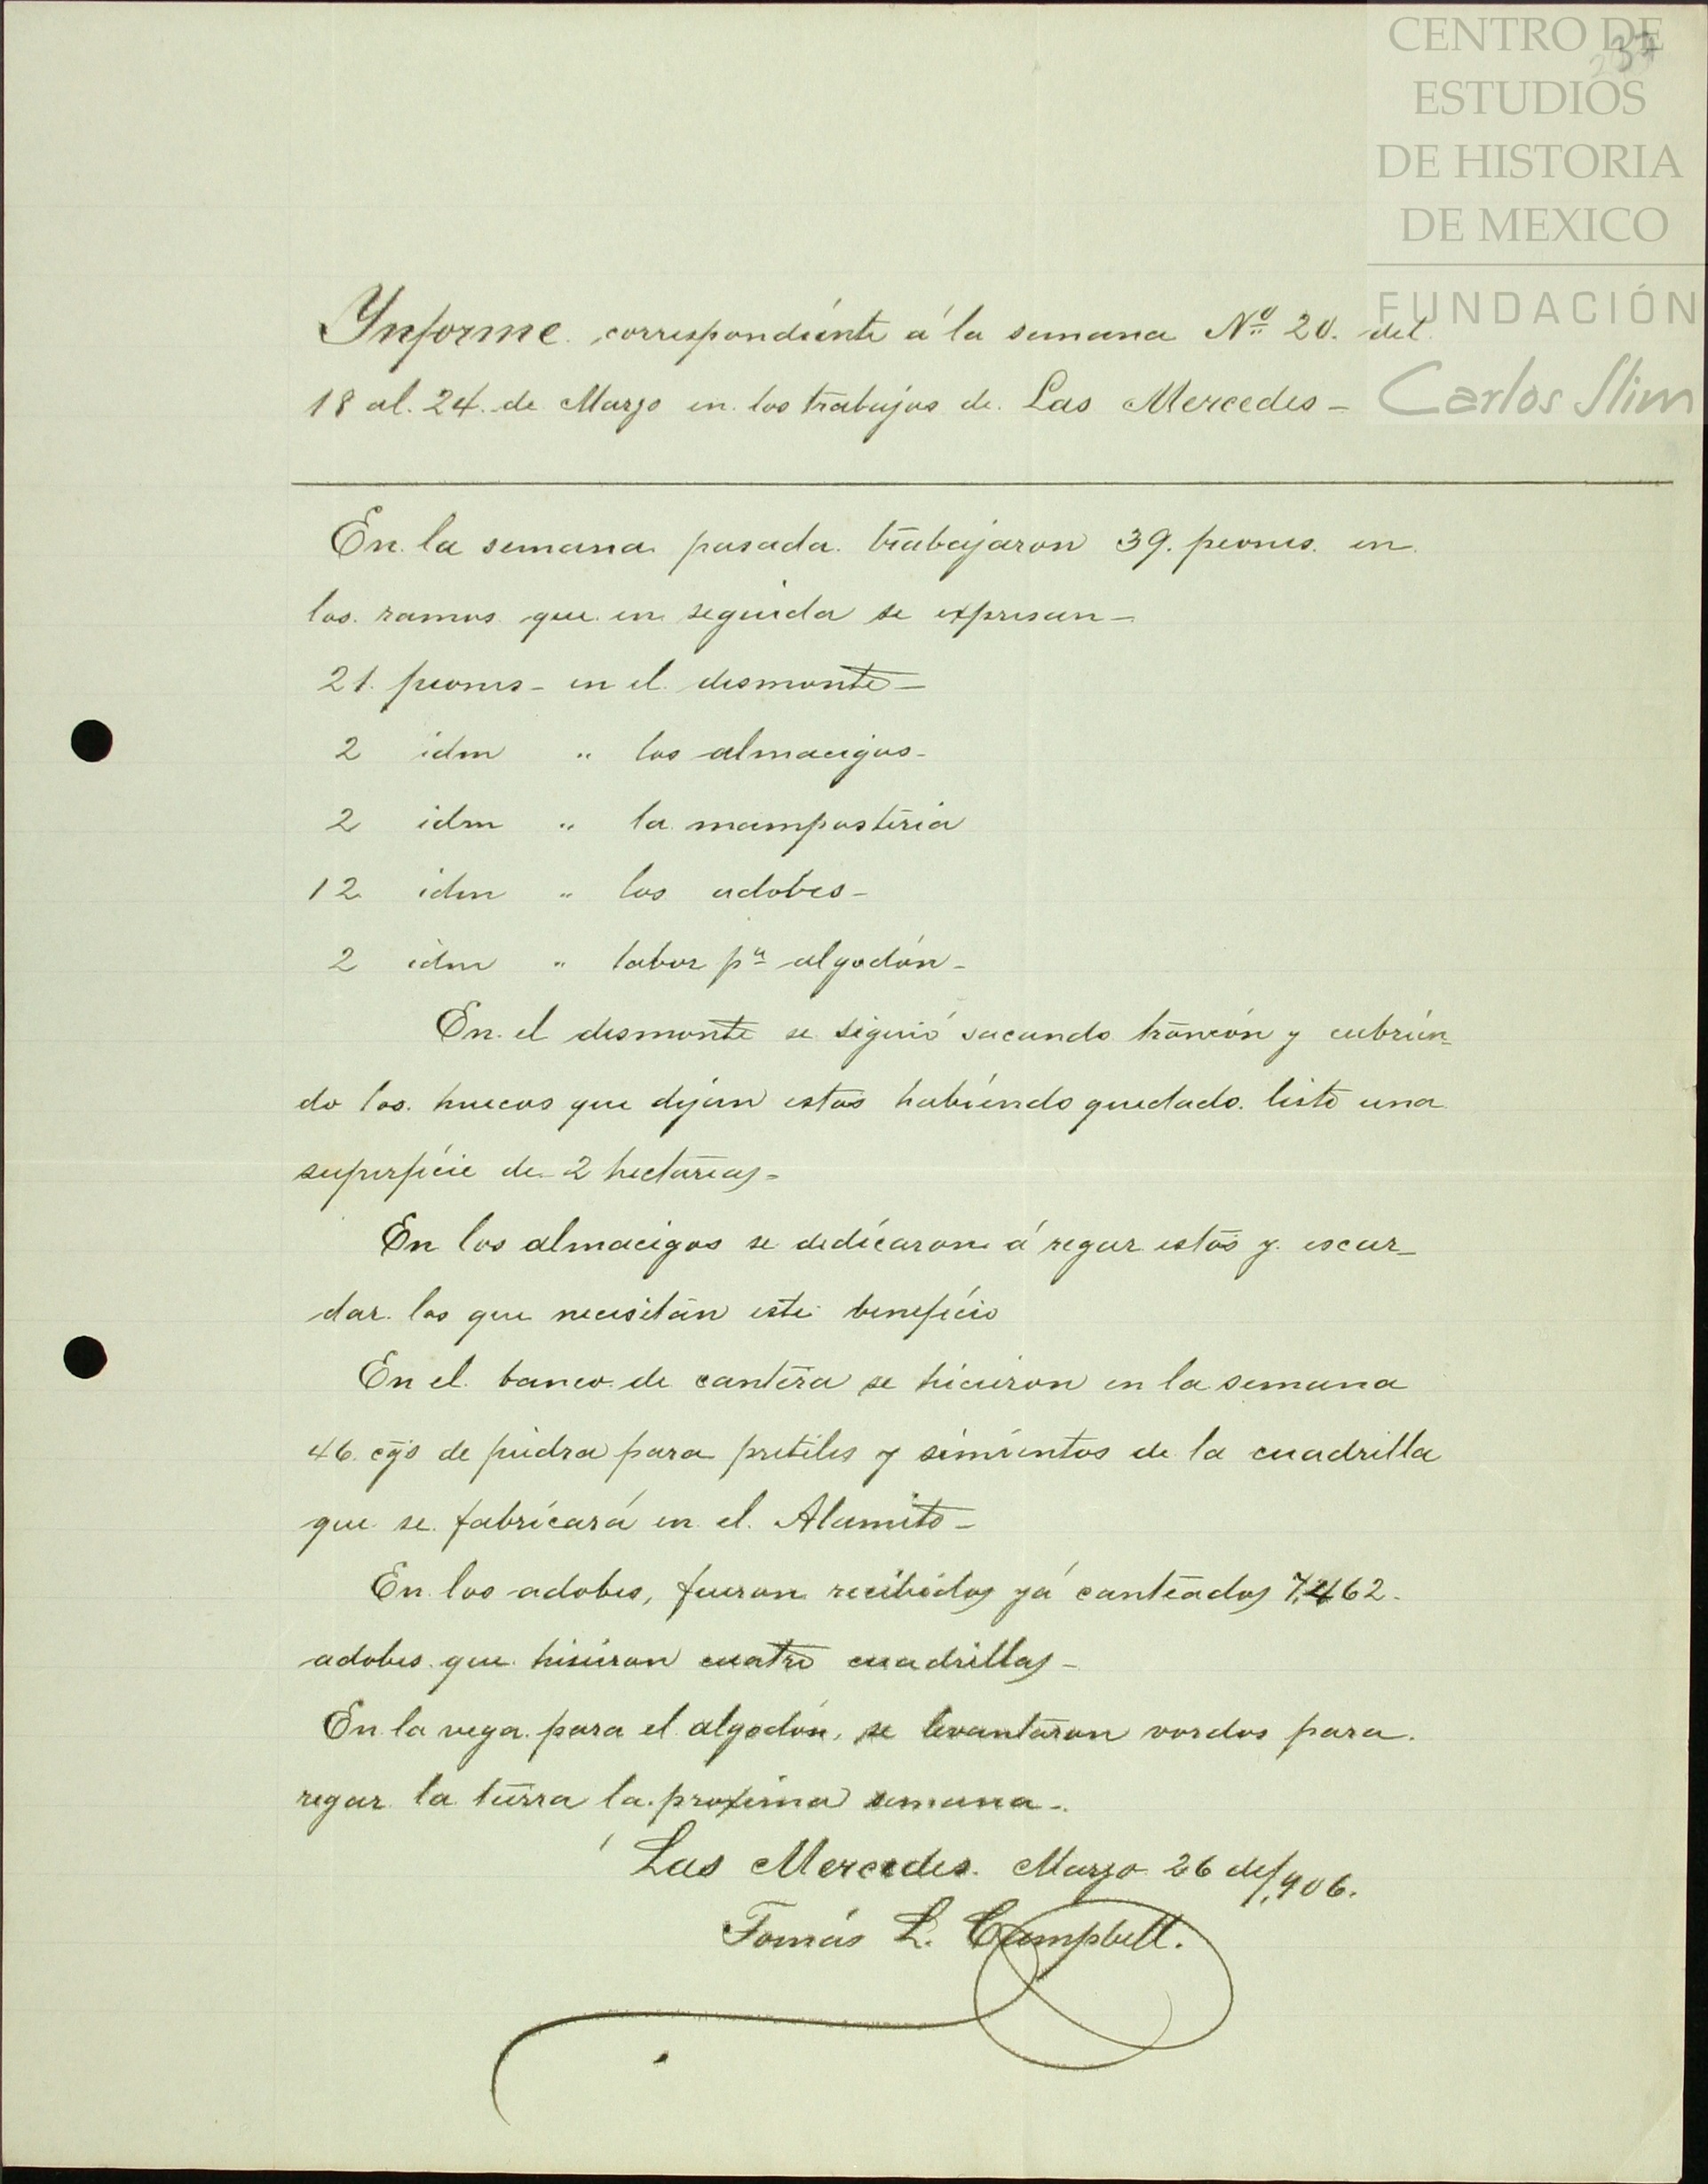 CENTRO DE
ESTUDIOS
DE HISTORIA
DE MEXICO
FUNDACIÓN
Carlos Slim
Ynforme correspondiente á la semana Nº 20. del
18 al 24 de Marzo en los trabajos de Las Mercedes-
En la semana pasada trabajaron 39. peones en
los ramos que en seguida se expresan-
21. peones- en el desmonte-
2 idm " los almacigos-
2 idm " la mamposteria
12 idm " los adobes-
2 idm " labor pª algodón-
En el desmonte se siguió sacando troncón y cubrien-
do los huecos que dejan estos habiendo quedado listo una
superficie de 2 hectareas-
En los almacigos se dedicaron á regar estos y escar-
dar los que necesitan este beneficio
En el banco de cantera se hicieron en la semana
46 cgs de piedra para pretiles y simientos de la cuadrilla
que se fabricará en el Alamito-
En los adobes, fueron recibidos yá canteados 7,462-
adobes que hisieron cuatro cuadrillas-
En la vega para el algodón, se levantaron vordos para
regar la tierra la proxima semana-
Las Mercedes. Marzo 26 de/1,906.
Tomás L. Campbell.